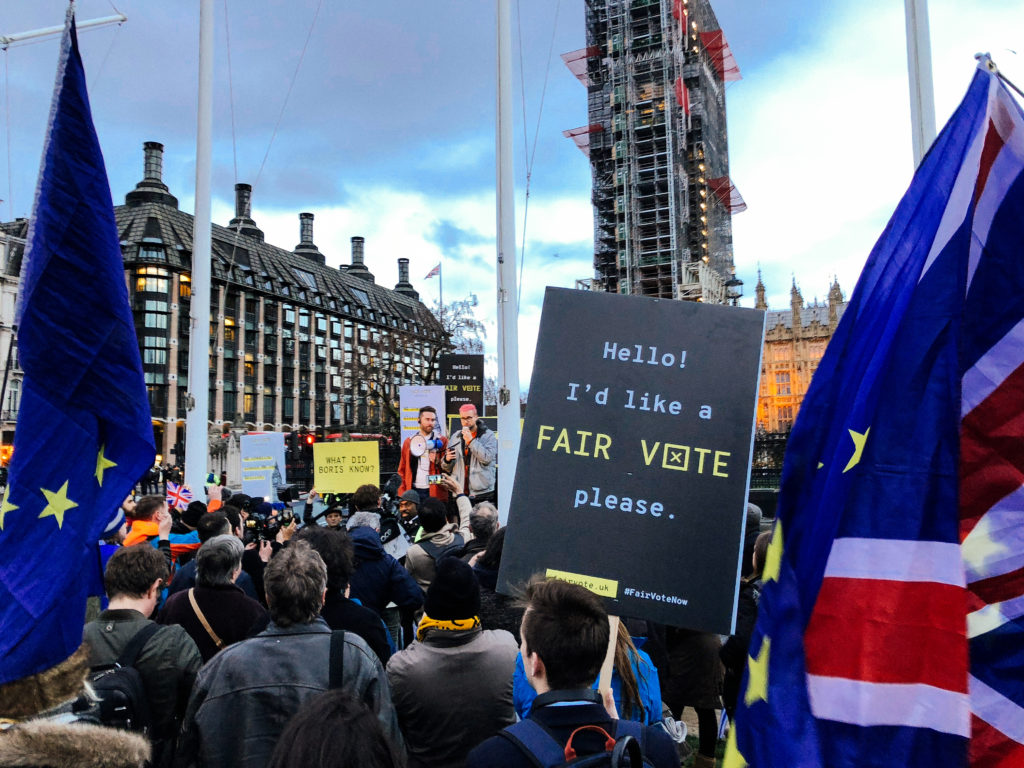 Hello!
I'd like a
FAIR VOTE
please.
fairvote.uk
#FairVoteNow
Hello!
I'd like a
FAIR VOTE
please.
WHAT DID
BORIS KNOW?